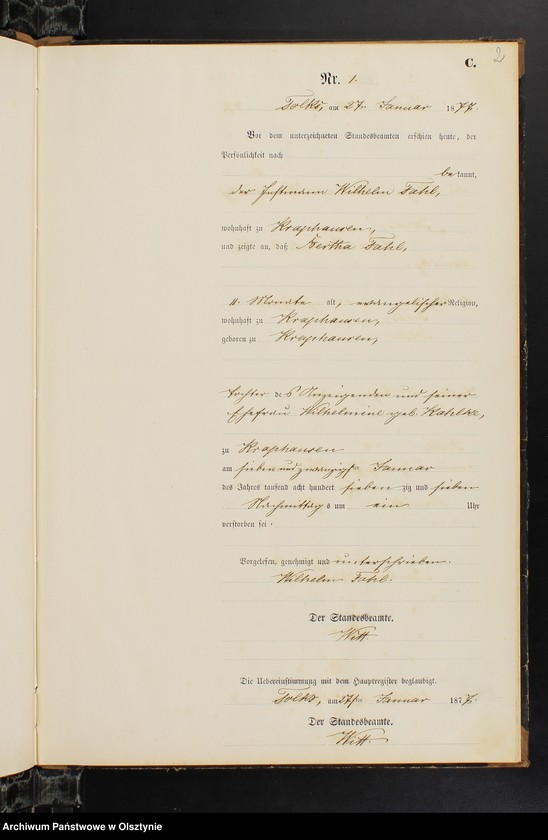 2
C.
Nr. 1.
Tolks, am 27ten Januar 1877.
Vor dem unterzeichneten Standesbeamten erschien heute, der
Persönlichkeit nach
bekannt,
der Instmann Wilhelm Fahl,
wohnhaft zu Kraphausen,
und zeigte an, daß Bertha Fahl,
Monate alt, evangelischer Religion,
wohnhaft zu Kraphausen,
geboren zu Kraphausen,
Tochter des Anzeigenden und seiner
Ehefrau Wilhelmine geb. Kahlke,
zu Kraphausen
am siebenundzwanzigsten Januar
des Jahres tausend acht hundert siebenzig und sieben
Nachmittags um ein Uhr
verstorben sei.
Vorgelesen, genehmigt und unterschrieben.
Wilhelm Fahl.
Der Standesbeamte.
Witt.
Die Uebereinstimmung mit dem Hauptregister beglaubigt.
Tolks, am 27ten Januar 1877.
Der Standesbeamte.
Witt.
Archiwum Państwowe w Olsztynie